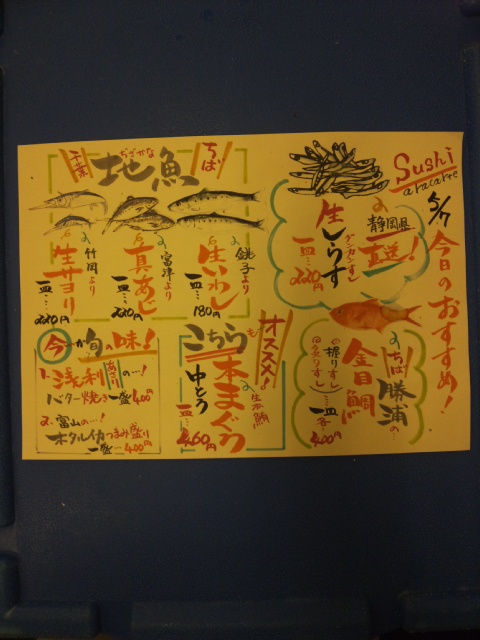 Sushi
a la carte
5/7
今日のおすすめ！
静岡県
直送！
生しらす
グンカンずし
一皿…220円
ちば
勝浦の
金目鯛
握りずし
一皿各…400円
千葉
ちざかな
地魚
ちば
銚子より
生いわし
一皿…180円
富津より
真あじ
一皿…220円
竹岡より
生サヨリ
一皿…220円
こちらもオススメ！
生本鮪
本まぐろ
中とろ
一皿…460円
今が旬の味！
1. 浅利の…！
あさり
バター焼き 一盛400円
2. 富山の…！
ホタルイカつまみ盛り
一盛…400円